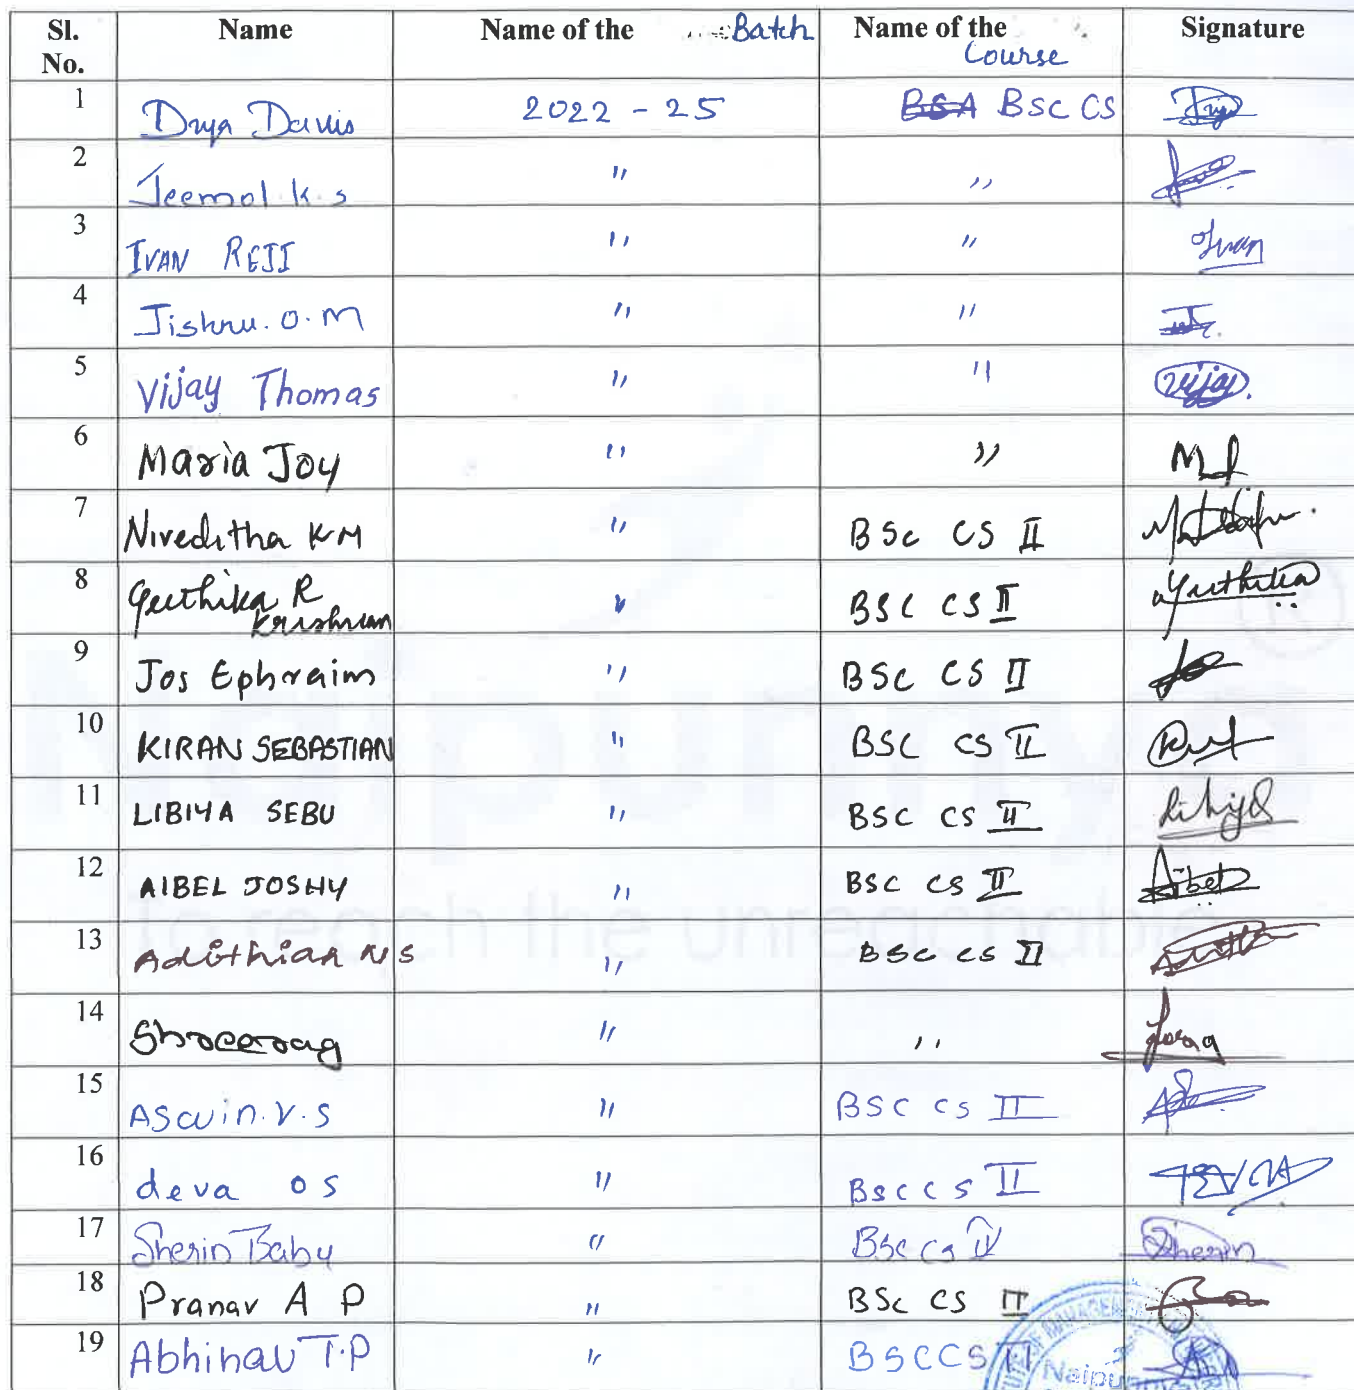 Sl. No. Name Name of the Batch Name of the Course Signature
1 Diya Davis 2022 - 25 BSA BSC CS
2 Jeemol K.S " "
3 IVAN REJI " " Ivan
4 Jishnu.O.M " "
5 Vijay Thomas " " Vijay.
6 Maria Joy " "
7 Niveditha KM " BSc CS II
8 Geethika R Krishnan " BSC CS II Geethika
9 Jos Ephraim " BSC CS II
10 KIRAN SEBASTIAN " BSC CS II
11 LIBIYA SEBU " BSC CS II Libiya
12 AIBEL JOSHY " BSC CS II Aibel
13 Adithian NS " BSC CS II
14 Shreerag " "
15 Aswin.V.S " BSC CS II
16 deva OS " BSCCS II DEVA
17 Sherin Baby " BSc Cs II Sherin
18 Pranav A P " BSc CS II
19 Abhinav T.P " BSCCS II
Naipunnya
To reach the unreachable